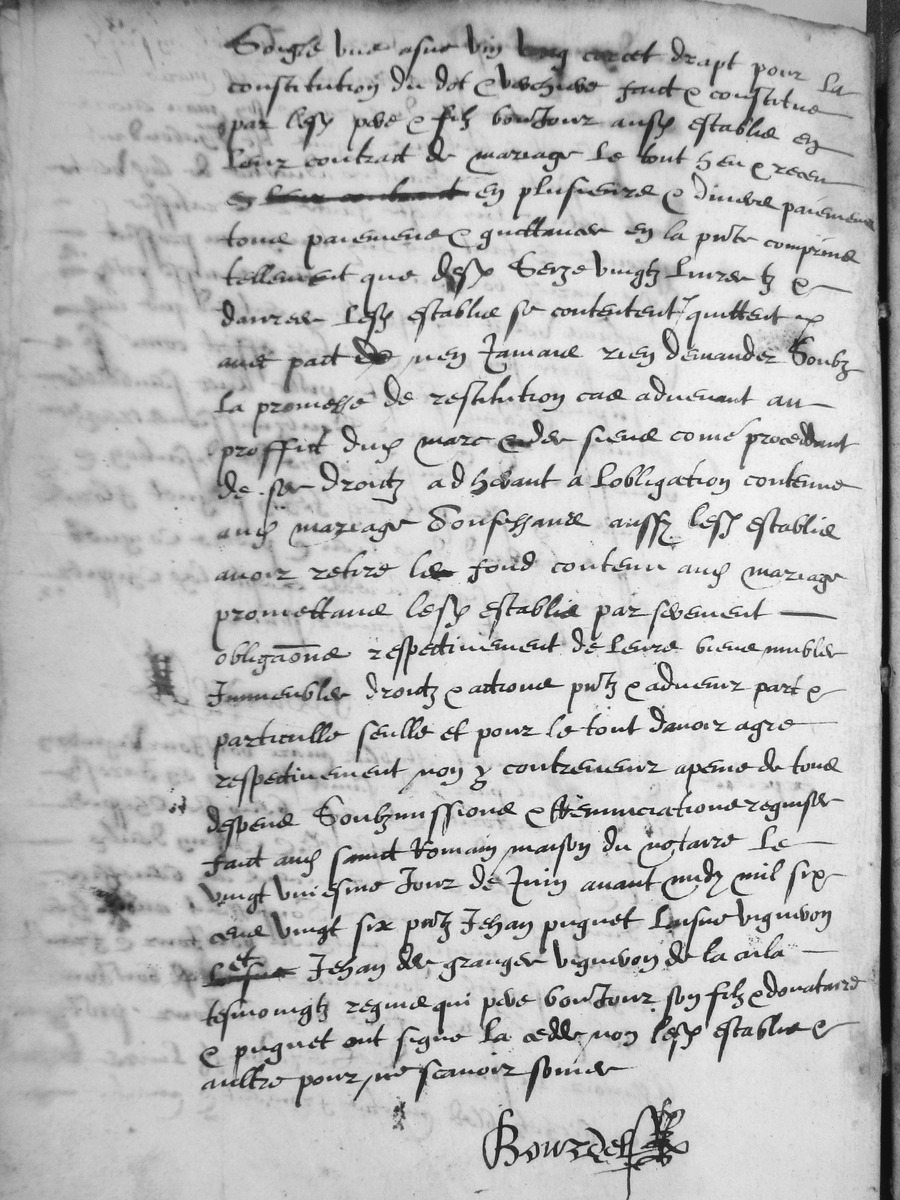 seigle une asne vin corcet drapt pour la
constitution du dot & verchiere faict & constitue
par lesd pere & filz bonJour ausd establis en
leur contract de mariage le tout heu & receu
en plusieurs & divers paiemens
tous paiemens & quittances en la pnte comprins
tellement que desd seize vingtz livres tz &
danrees lesd establis se contentent quittent &
avec pact de nen Jamais rien demander soubz
la promesse de restitution cas advenant au
proffict dud marc & des siens come procedant
de ses droitz adherant a lobligation contenue
aud mariage Confessans aussy lesd establis
avoir retire le fond contenu aud mariage
promettans lesd establis par serement
obligaons respectivement de leurs biens meubles
Immeubles droitz & actions pntz & advenir part &
particulle seulle et pour le tout davoir agre
respectivement non y contrevenir a peine de tous
despens Soubzmissions & Renunciations requises
faict aud sainct Romain maison du notaire le
vingt uniesme Jour de Juin avant midy mil six
cens vingt six pntz Jehan puguet laisne vigneron
et Jehan des granges vigneron de la cula
tesmoingtz requis qui pere bonJour son filz & donataire
& puguet ont signe la cedde non lesd establis &
aultre pour ne scavoir somes
Bourdel